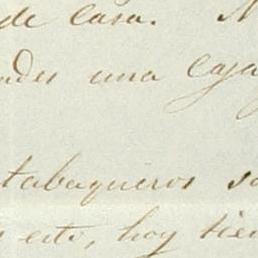 de casa. N
ades una caja
tabaqueros so
s esto, hoy tien